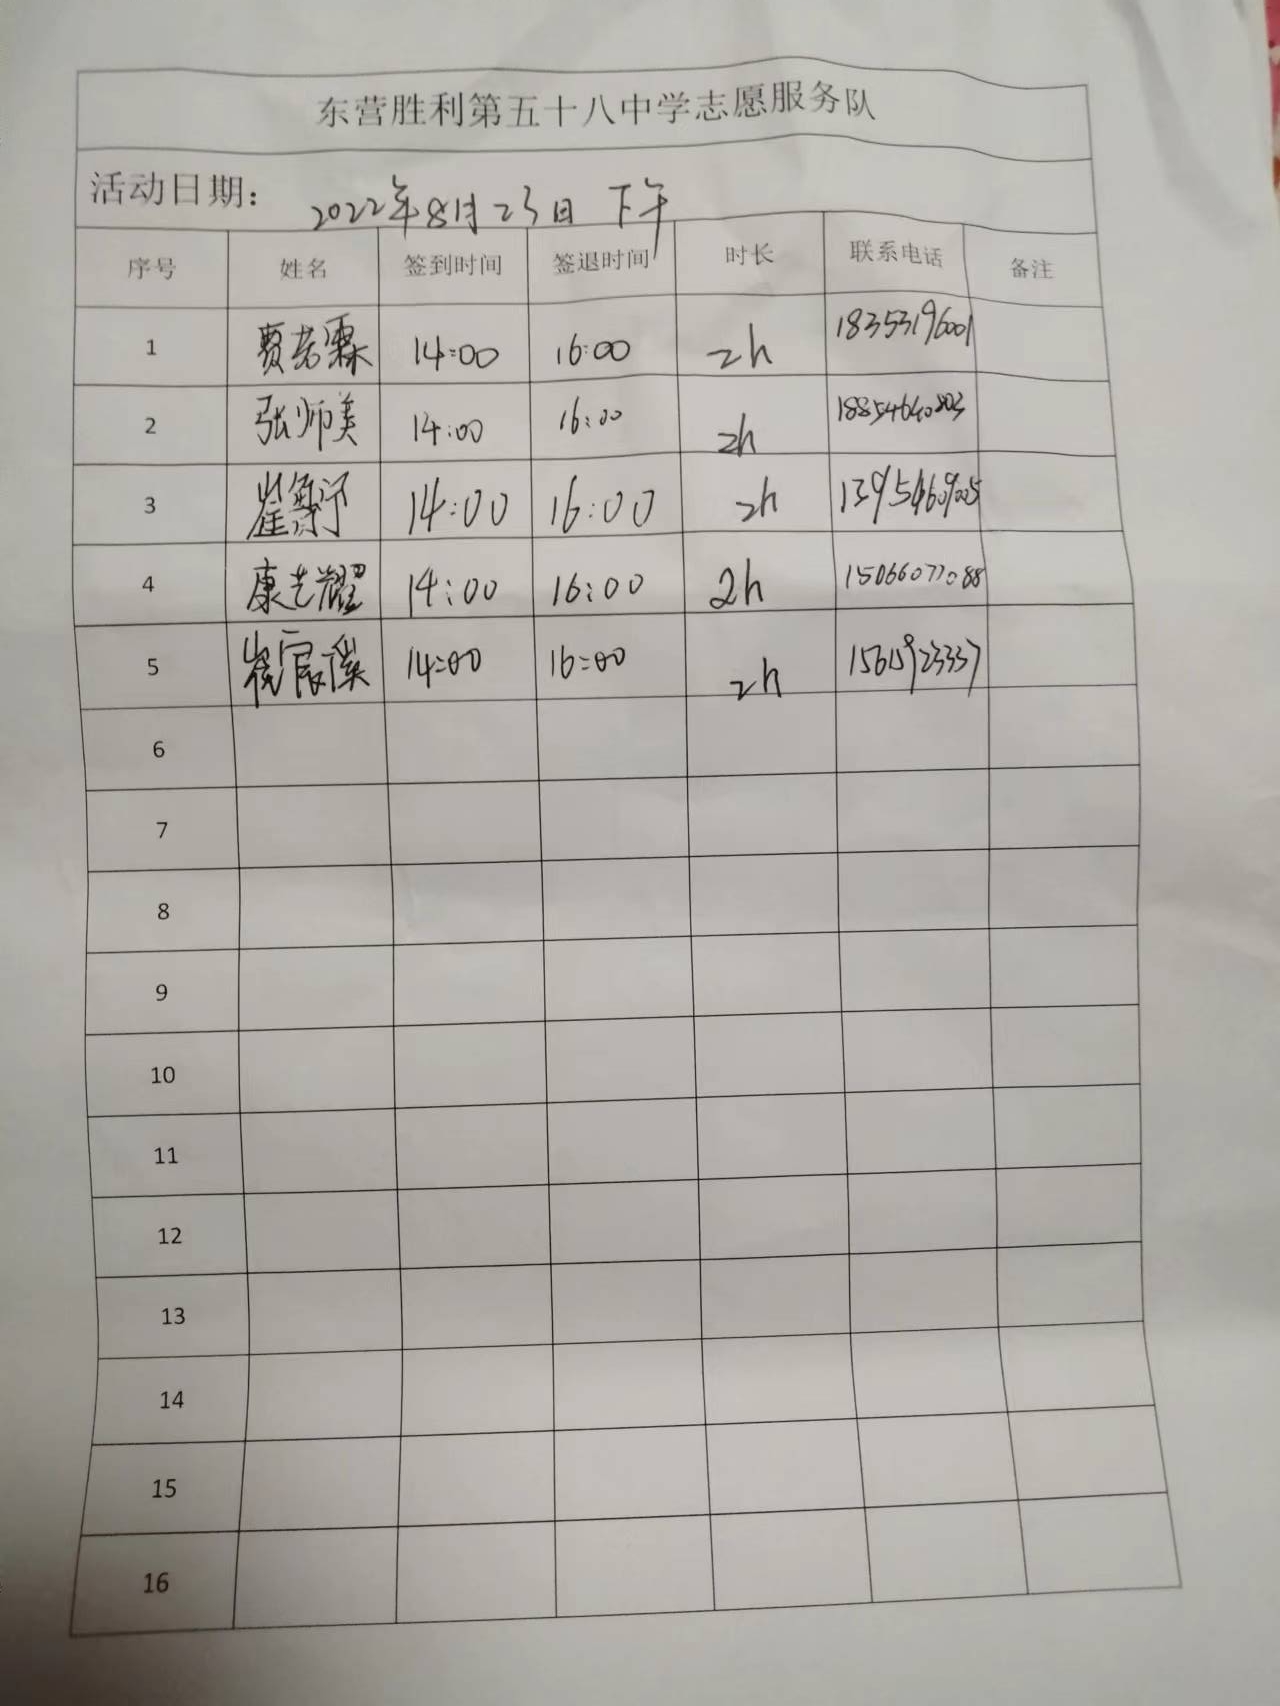 东营胜利第五十八中学志愿服务队
活动日期： 2022年8月23日 下午
序号 姓名 签到时间 签退时间 时长 联系电话 备注
1 贾若霖 14:00 16:00 2h 18353196001
2 张师美 14:00 16:00 2h
3 14:00 16:00 2h
4 康艺耀 14:00 16:00 2h 15066077088
5 崔宸溪 14:00 16:00 2h 15615923337
6
7
8
9
10
11
12
13
14
15
16